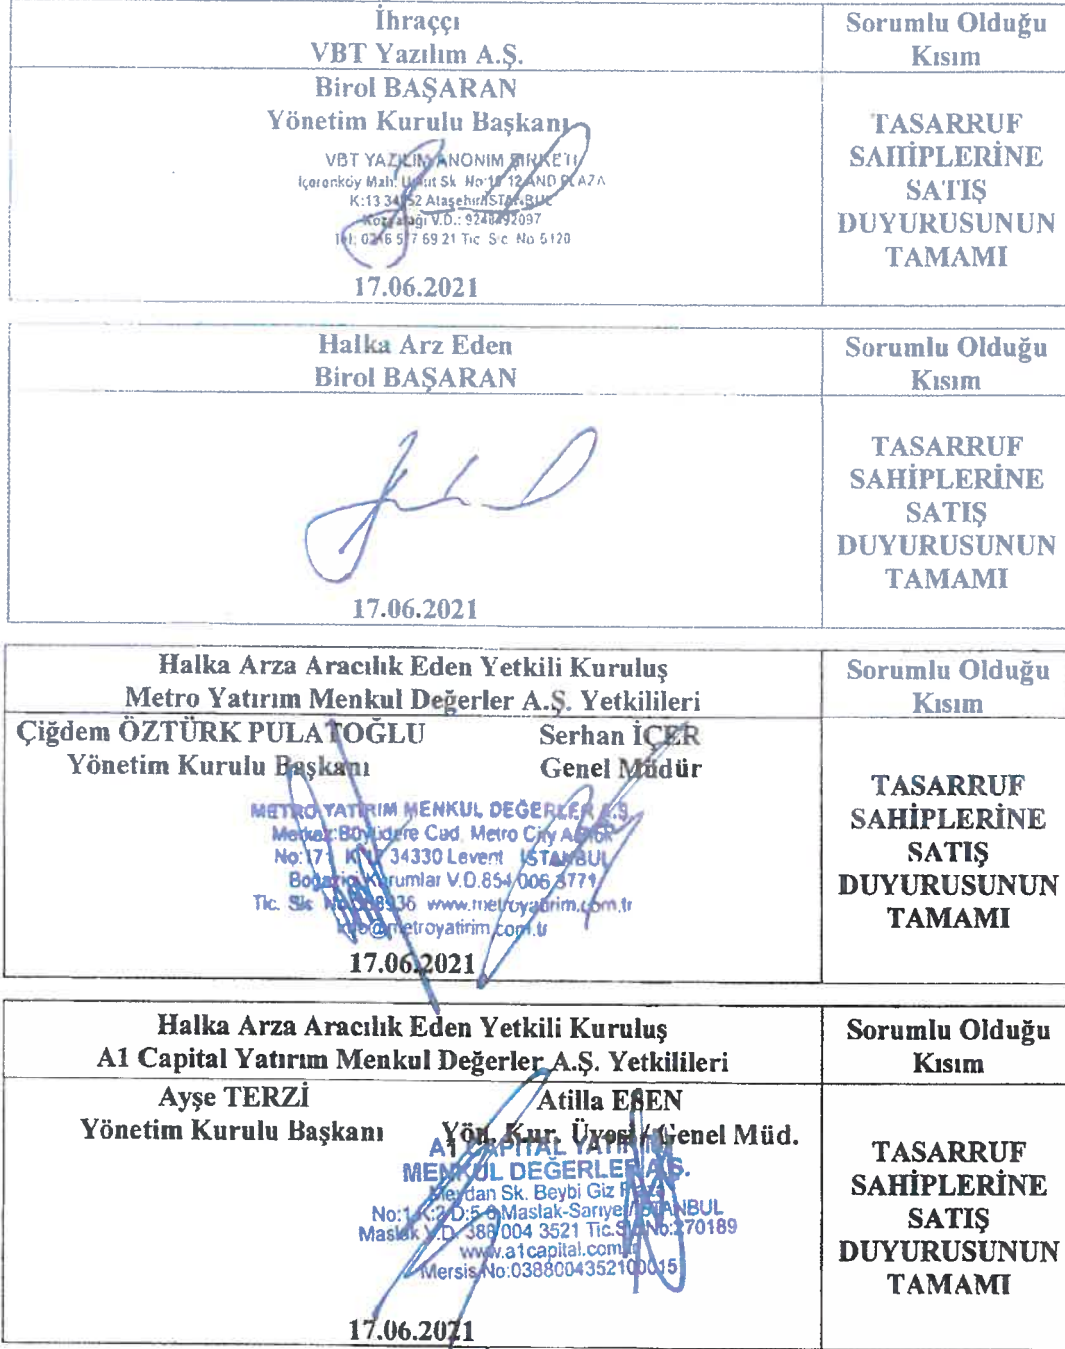 İhraççı
VBT Yazılım A.Ş.
Sorumlu Olduğu
Kısım
Birol BAŞARAN
Yönetim Kurulu Başkanı
VBT YAZILIM ANONİM ŞİRKETİ
İçerenköy Mah. Umut Sk. No:10 12 AND PLAZA
K:13 34752 Ataşehir/İSTANBUL
Kozyatağı V.D.: 9248492097
Tel: 0216 577 69 21 Tic. Sic. No 5120
17.06.2021
TASARRUF
SAHİPLERİNE
SATIŞ
DUYURUSUNUN
TAMAMI
Halka Arz Eden
Birol BAŞARAN
Sorumlu Olduğu
Kısım
17.06.2021
TASARRUF
SAHİPLERİNE
SATIŞ
DUYURUSUNUN
TAMAMI
Halka Arza Aracılık Eden Yetkili Kuruluş
Metro Yatırım Menkul Değerler A.Ş. Yetkilileri
Sorumlu Olduğu
Kısım
Çiğdem ÖZTÜRK PULATOĞLU Serhan İÇER
Yönetim Kurulu Başkanı Genel Müdür
METRO YATIRIM MENKUL DEĞERLER A.Ş.
Merkez: Büyükdere Cad. Metro City A
No:171 K:17 34330 Levent İSTANBUL
Boğaziçi Kurumlar V.D.854 006 3771
Tic. Sic. www.metroyatirim.com.tr
info@metroyatirim.com.tr
17.06.2021
TASARRUF
SAHİPLERİNE
SATIŞ
DUYURUSUNUN
TAMAMI
Halka Arza Aracılık Eden Yetkili Kuruluş
A1 Capital Yatırım Menkul Değerler A.Ş. Yetkilileri
Sorumlu Olduğu
Kısım
Ayşe TERZİ Atilla ESEN
Yönetim Kurulu Başkanı Yön. Kur. Üyesi / Genel Müd.
A1 CAPITAL YATIRIM
MENKUL DEĞERLER A.Ş.
Meydan Sk. Beybi Giz Plaza
No:1 K:2 D:5-6 Maslak-Sarıyer/İSTANBUL
Maslak V.D. 388 004 3521 Tic.Sic.No:270189
www.a1capital.com.tr
Mersis No:0388004352100015
17.06.2021
TASARRUF
SAHİPLERİNE
SATIŞ
DUYURUSUNUN
TAMAMI